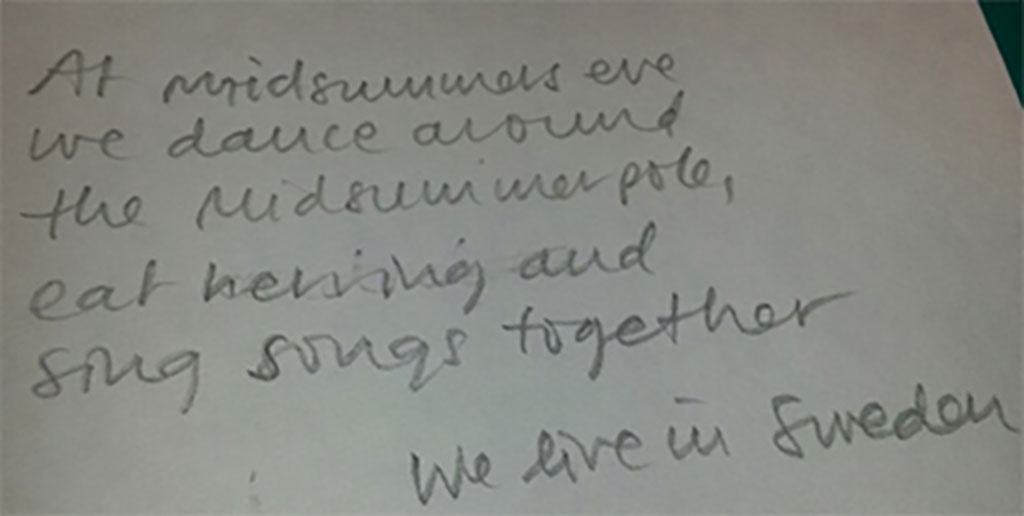 At midsummers eve
we dance around
the Midsummerpole,
eat herring and
sing songs together
We live in Sweden